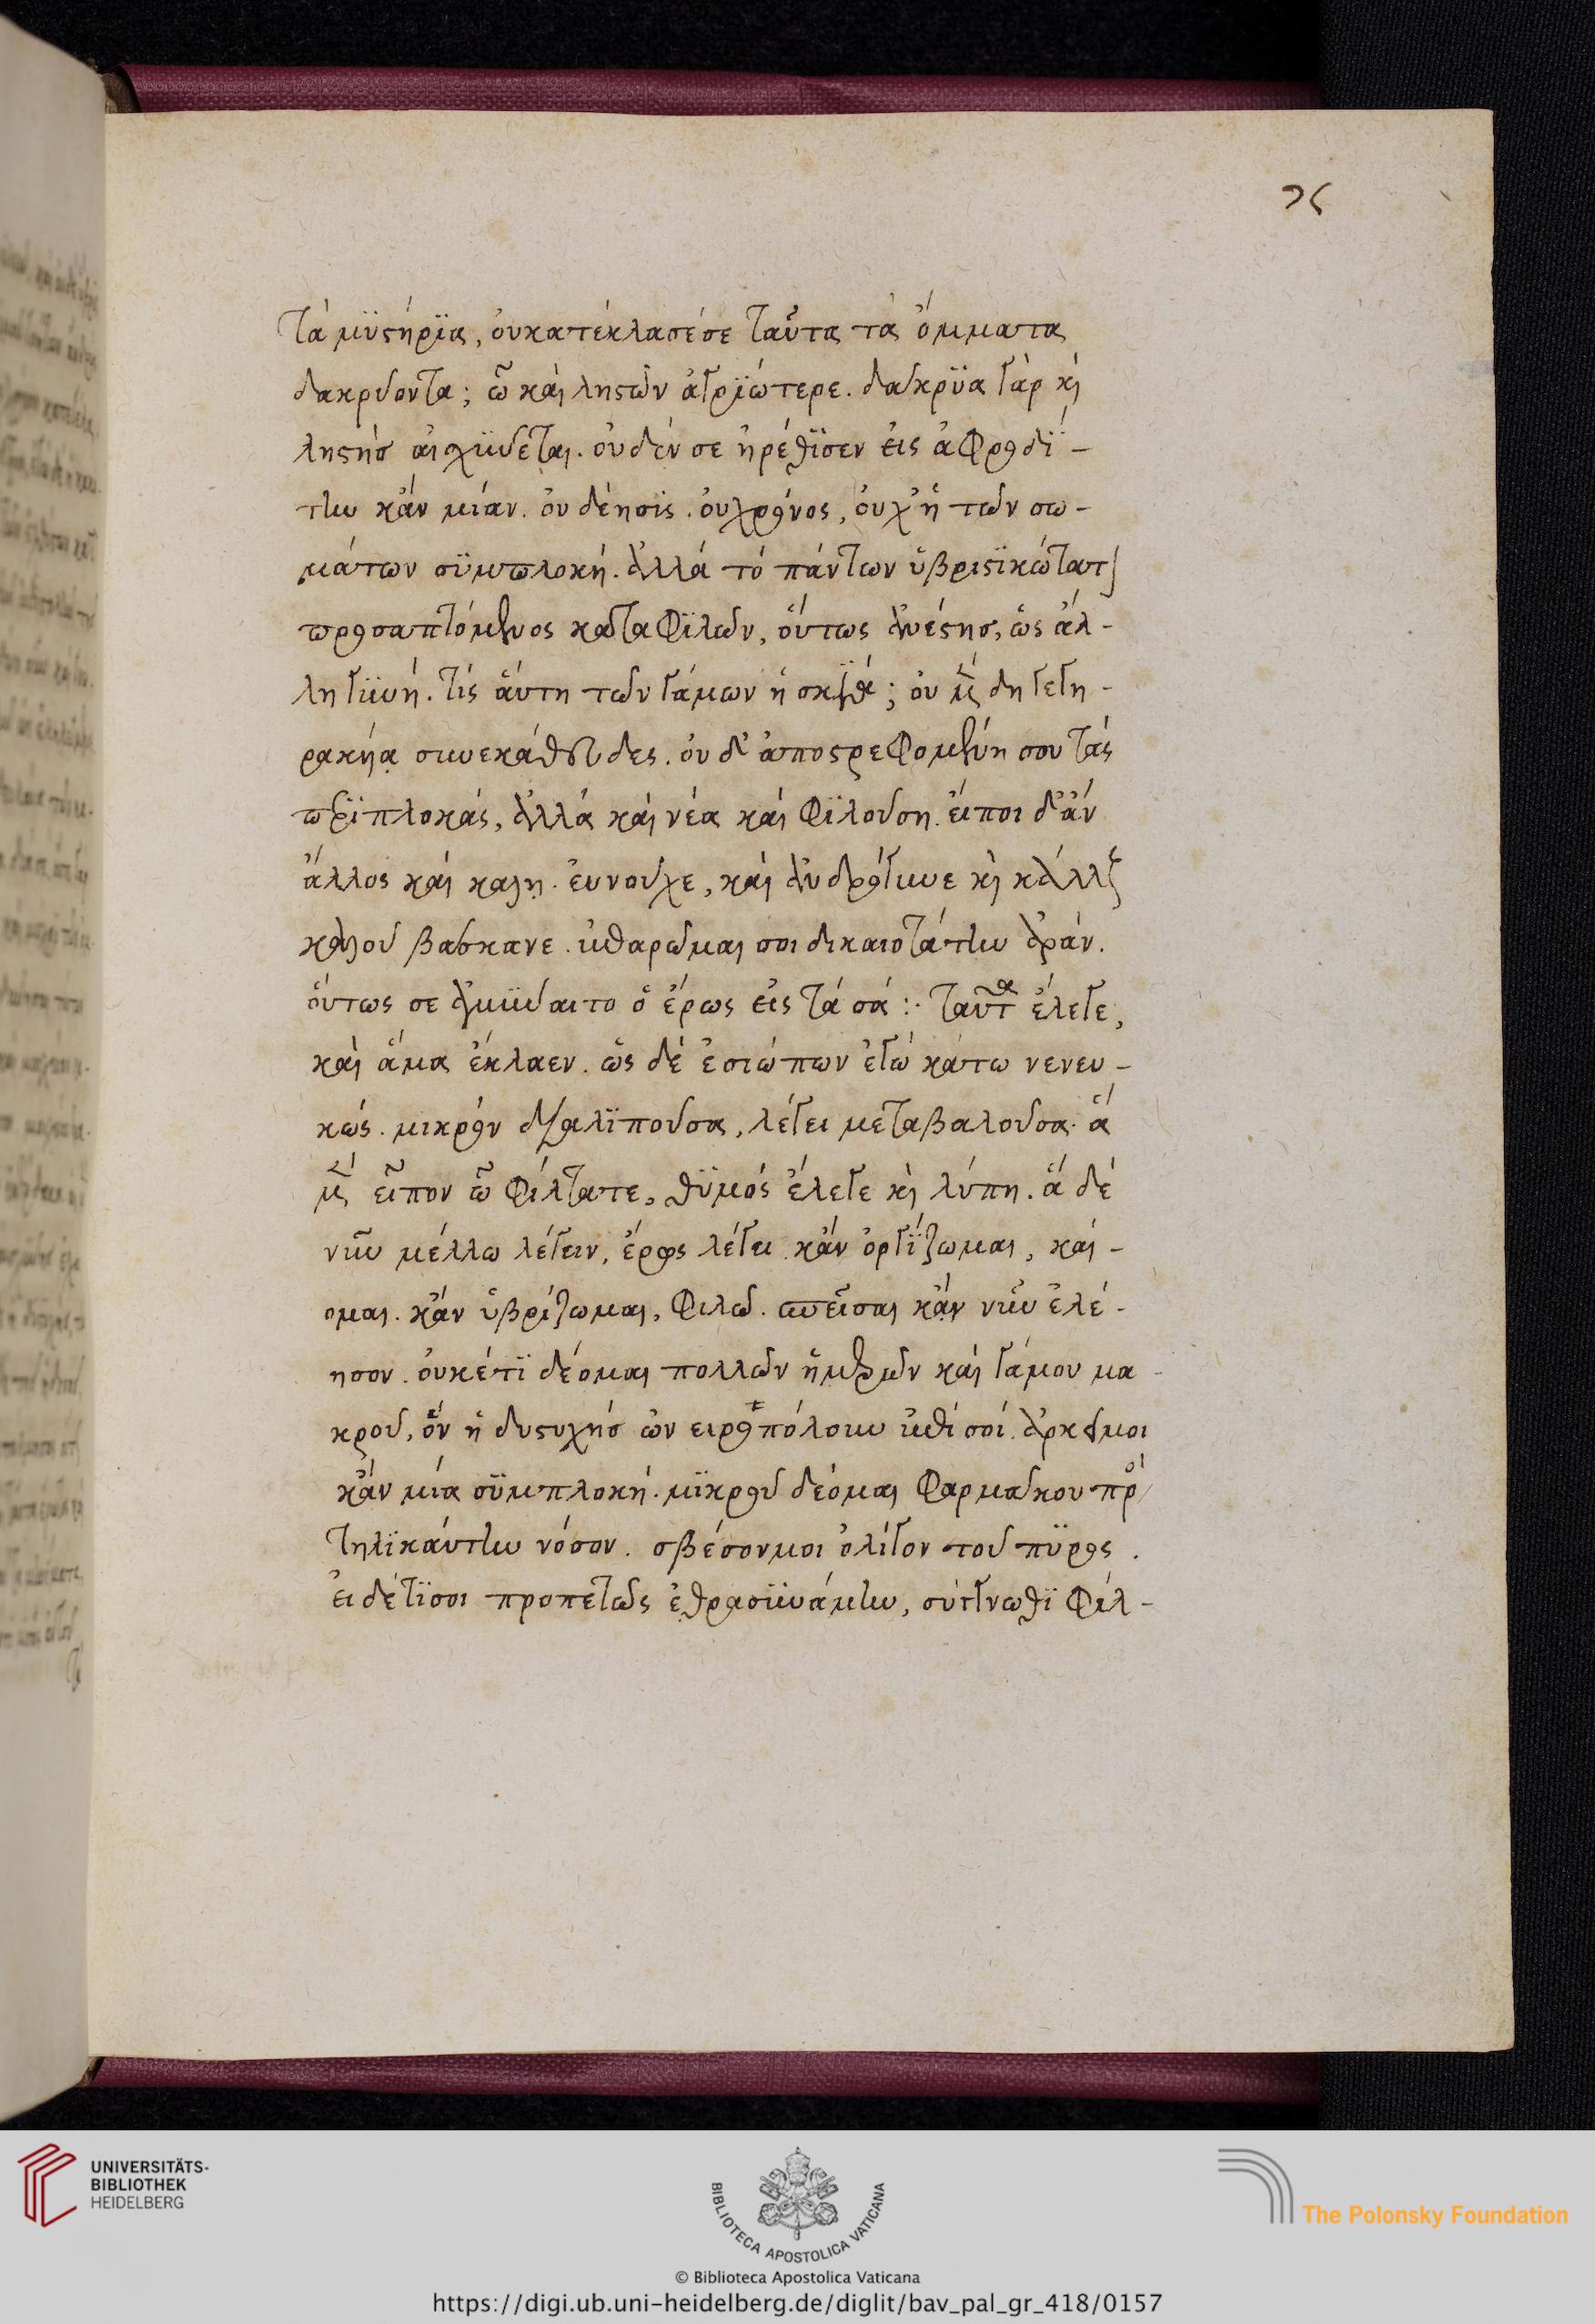 ϟϛ
τὰ μϋστήρϊα, ὀυκατέκλασέσε ταῦτα τὰ ὄμματα
δακρύοντα; ὦ καὶ ληστῶν ἀγρϊώτερε. δάκρϋα γὰρ κὶ
ληστὴσ αἰσχϋύεται. ὀυδέν σε ἠρέθϊσεν εἰς ἀφροδί-
την κἂν μίαν. ὀυ δέησϊς. ὀυχρόνος, ὀυχ ἡ τῶν σω-
μάτων σϋμπλοκή. ἀλλὰ τὸ πάντων ὑβριστϊκώτατ
προσαπτόμενος καταφϊλῶν, ὅυτως ἀνέστησ, ὡς ἄλ-
λη γϋνή. τίς ἅυτη τῶν γάμων ἡ σκϊά; ὀυ μὲν δη γεγη-
ρακήα συνεκάθευδες. ὀυ δ' ἀποστρεφομένη σου τὰς
περϊπλοκάς, ἀλλὰ καὶ νέα καὶ φϊλούση. ἔιποι δ' ἂν
ἄλλος καὶ καλη. ἐυνοῦχε, καὶ ἀνδρόγυνε κὶ κάλλους
καλοῦ βάσκανε. ἐπαρῶμαι σοι δικαιοτάτην ἀράν.
ὅυτως σε ἀμϋύαιτο ὁ ἔρως εἰς τὰ σά :· ταῦτα ἔλεγε,
καὶ ἅμα ἔκλαεν. ὡς δὲ ἐσιώπων ἐγὼ κάτω νενευ-
κώς. μικρὸν διαλϊποῦσα, λέγει μεταβαλοῦσα. ἃ
μὲν εἶπον ὦ φίλτατε, θϋμὸς ἔλεγε κὶ λύπη. ἃ δὲ
νῦν μέλλω λέγειν, ἔρως λέγει. κἂν ὀργίζωμαι, κάι-
ομαι. κἂν ὑβρίζωμαι, φιλῶ. σπεῖσαι κἂν νῦν ἐλέ-
ησον. ὀυκέτϊ δέομαι πολλῶν ἡμερῶν καὶ γάμου μα-
κροῦ, ὃν ἡ δυστυχὴσ ὠνειροπόλουν ἐπὶ σοί. ἀρκεῖ μοι
κἂν μία σϋμπλοκή. μϊκροῦ δέομαι φαρμάκου πρὸ
τηλϊκάυτην νόσον. σβέσονμοι ὀλίγον τοῦ πϋρός.
ἐι δέτϊσοι προπετῶς ἐθρασϋυάμην, σύγγνωθϊ φίλ-
UNIVERSITÄTS-
BIBLIOTHEK
HEIDELBERG
BIBLIOTECA APOSTOLICA VATICANA
The Polonsky Foundation
© Biblioteca Apostolica Vaticana
https://digi.ub.uni-heidelberg.de/diglit/bav_pal_gr_418/0157